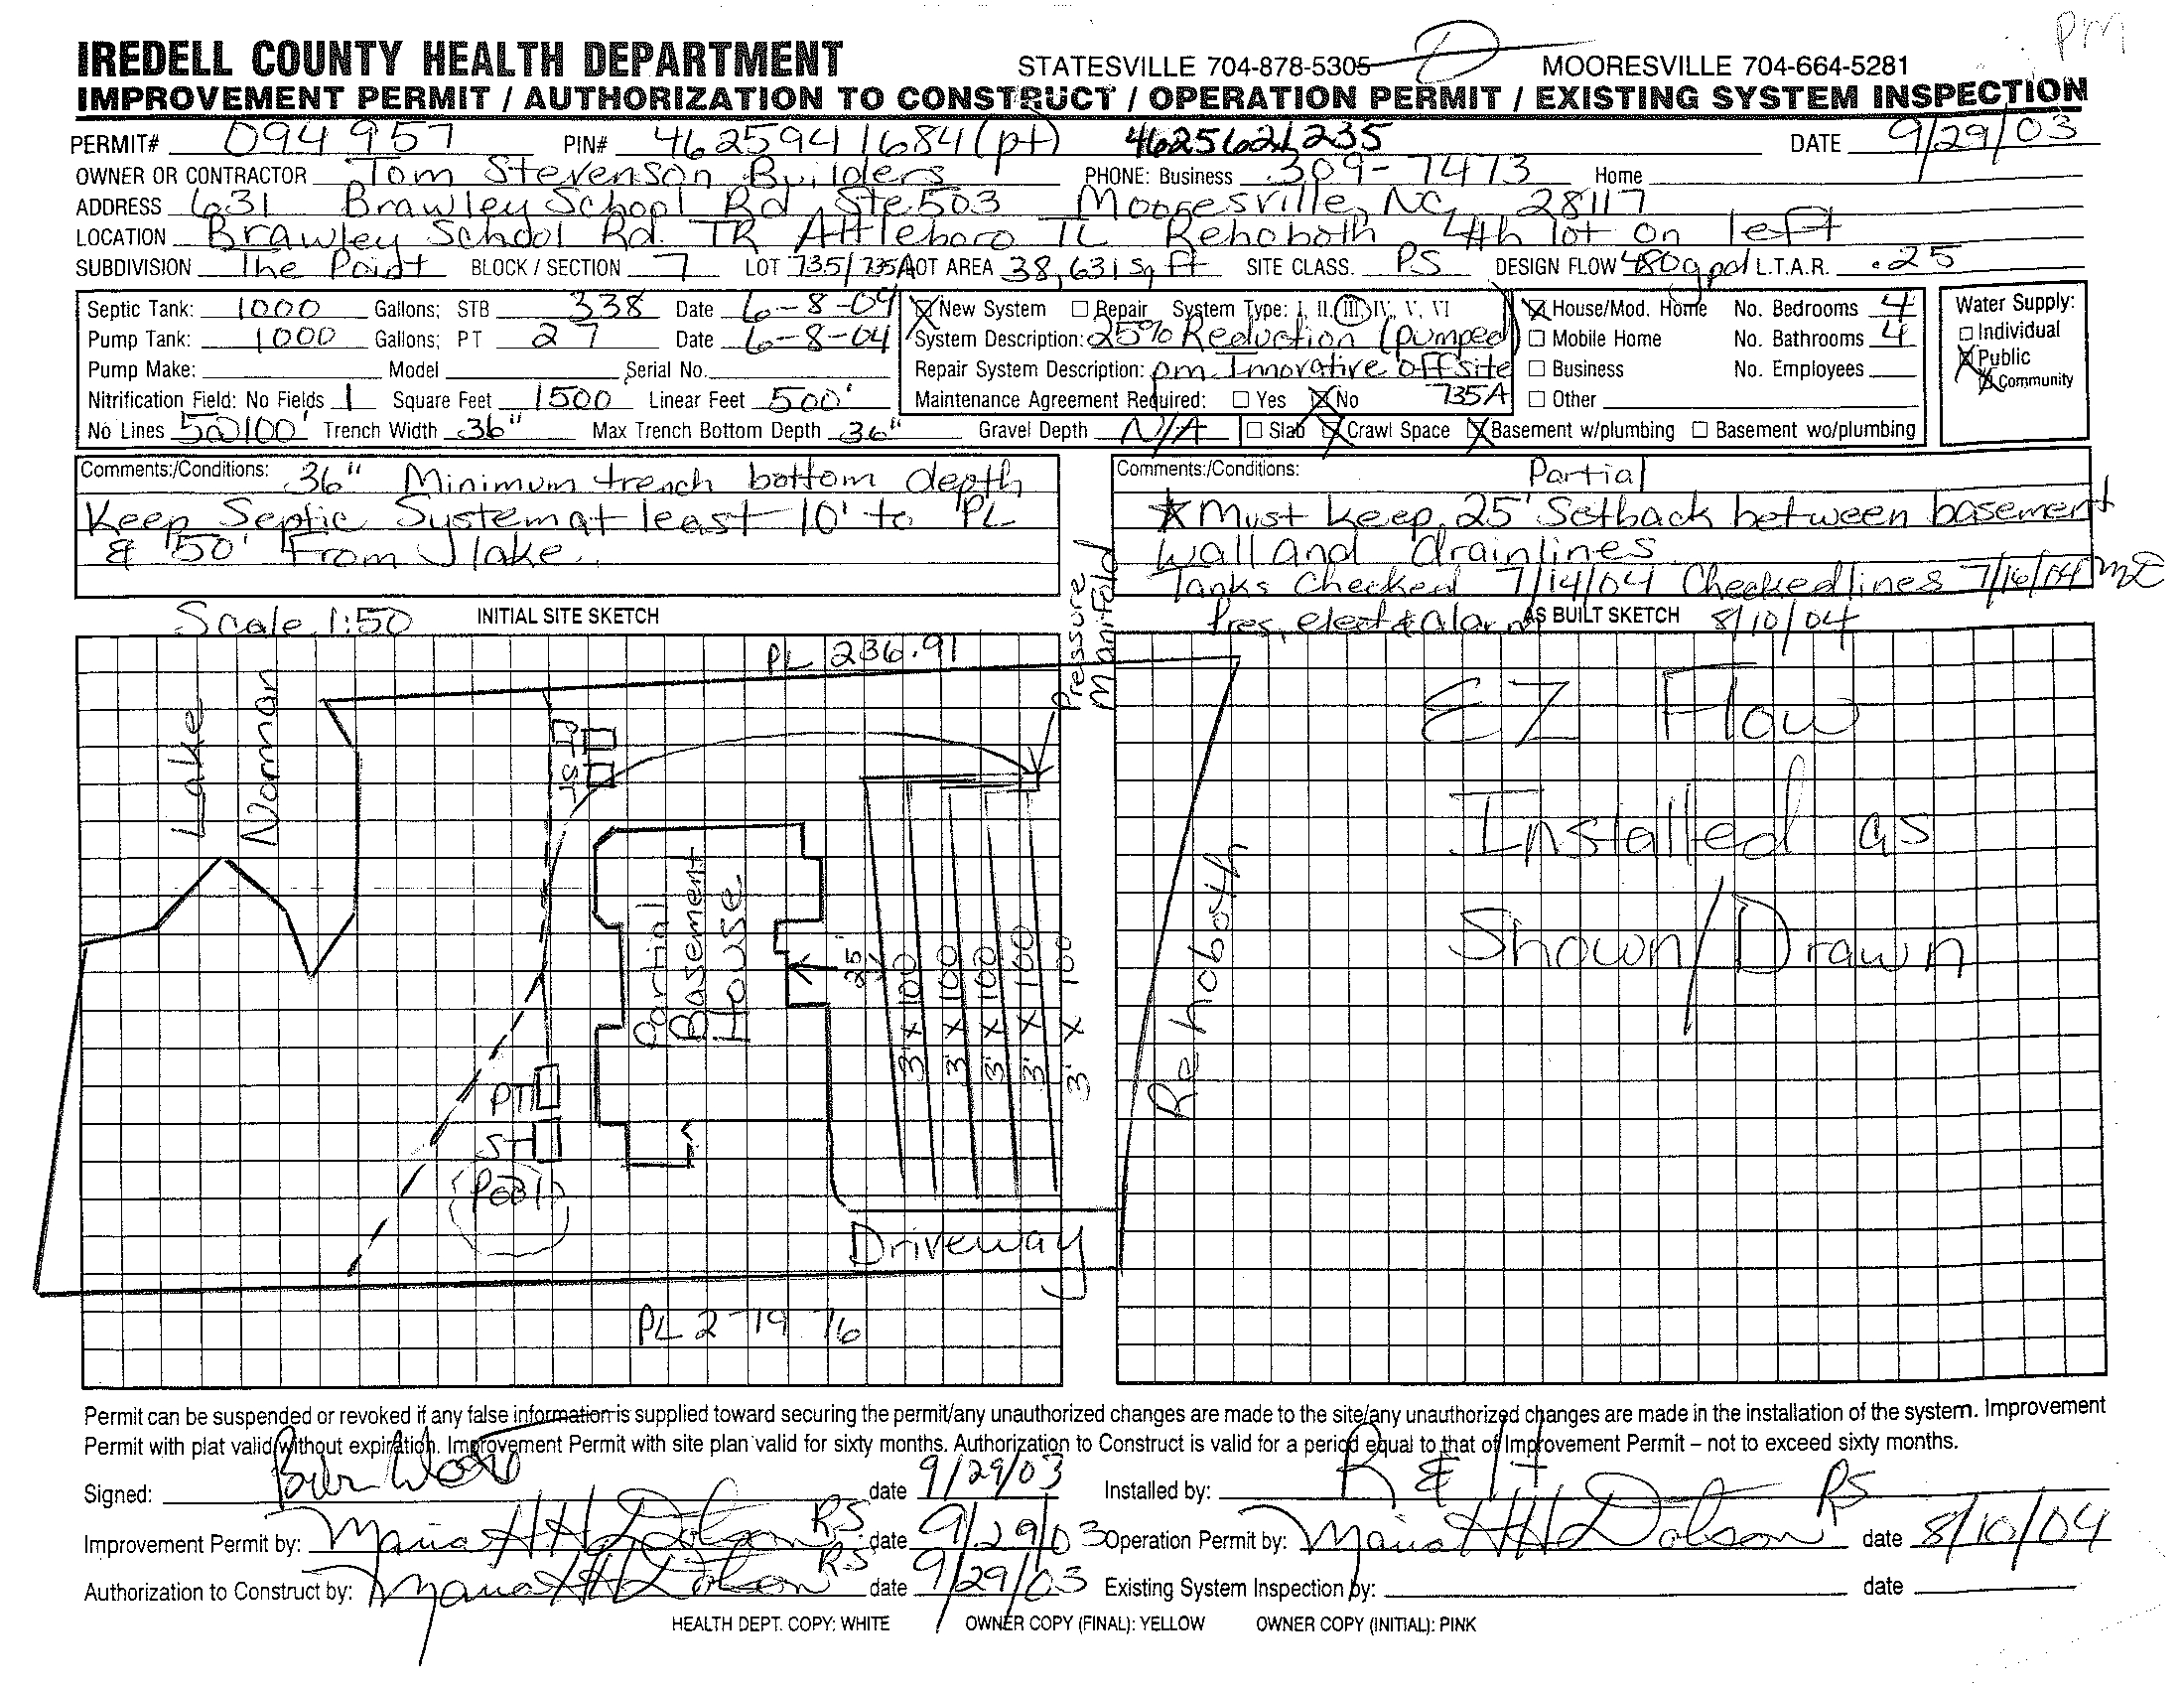 PM
IREDELL COUNTY HEALTH DEPARTMENT STATESVILLE 704-878-5305 D MOORESVILLE 704-664-5281
IMPROVEMENT PERMIT / AUTHORIZATION TO CONSTRUCT / OPERATION PERMIT / EXISTING SYSTEM INSPECTION
PERMIT# 094957 PIN# 4625941684(pt) 4625621235 DATE 9/29/03
OWNER OR CONTRACTOR Tom Stevenson Builders PHONE: Business 309-7473 Home
ADDRESS 631 Brawley School Rd Ste 503 Mooresville, NC 28117
LOCATION Brawley School Rd. TR Attleboro TL Rehoboth 4th lot on left
SUBDIVISION The Point BLOCK / SECTION 7 LOT 735/735A LOT AREA 38,631 Sq Ft SITE CLASS. PS DESIGN FLOW 480gpd L.T.A.R. .25
Septic Tank: 1000 Gallons; STB 338 Date 6-8-04 New System Repair System Type: I, II, III, IV, V, VI House/Mod. Home No. Bedrooms 4 Water Supply:
Pump Tank: 1000 Gallons; PT 27 Date 6-8-04 System Description: 25% Reduction (pumped) Mobile Home No. Bathrooms 4 Individual
Pump Make: Model Serial No. Repair System Description: pm Innovative offsite Business No. Employees Public
Nitrification Field: No Fields 1 Square Feet 1500 Linear Feet 500' Maintenance Agreement Required: Yes No 735A Other Community
No Lines 5@100' Trench Width 36" Max Trench Bottom Depth 36" Gravel Depth N/A Slab Crawl Space Basement w/plumbing Basement wo/plumbing
Comments:/Conditions: 36" Minimum trench bottom depth
Keep Septic System at least 10' to PL
& 50' From lake.
Comments:/Conditions: Partial
* Must keep 25' Setback between basement
wall and drainlines
Tanks Checked 7/14/04 Checked lines 7/16/04 MD
Scale 1:50 INITIAL SITE SKETCH
Pres, elect & alarm AS BUILT SKETCH 8/10/04
PL 236.91
Pressure Manifold
Lake Norman
PT
ST
Partial Basement House
25'
3' X 100
3' X 100
3' X 100
3' X 100
3' X 100
Rehoboth
PT
ST
Pool
Driveway
PL 279.76
EZ Flow
Installed as
Shown/Drawn
Permit can be suspended or revoked if any false information is supplied toward securing the permit/any unauthorized changes are made to the site/any unauthorized changes are made in the installation of the system. Improvement
Permit with plat valid without expiration. Improvement Permit with site plan valid for sixty months. Authorization to Construct is valid for a period equal to that of Improvement Permit – not to exceed sixty months.
Signed: date 9/29/03 Installed by: R & H
Improvement Permit by: Maria H Dotson RS date 9/29/03 Operation Permit by: Maria H Dotson RS date 8/10/04
Authorization to Construct by: Maria H Dotson RS date 9/29/03 Existing System Inspection by: date
HEALTH DEPT. COPY: WHITE OWNER COPY (FINAL): YELLOW OWNER COPY (INITIAL): PINK